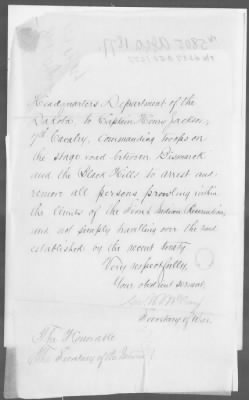 5805 AGO 1877
Headquarters Department of the
Dakota to Captain Henry Jackson,
7th Cavalry, commanding troops on
the stage road between Bismarck
and the Black Hills to arrest and
remove all persons prowling within
the limits of the Sioux Indian Reservation,
and not simply travelling over the road
established by the recent treaty
Very respectfully,
Your obedient servant,
Secretary of War.
The Honorable
The Secretary of the Interior